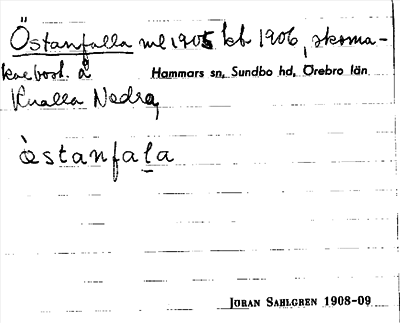 Östanfalla ml 1905 kb 1906, skoma-
karbost. å Hammars sn, Sundbo hd, Örebro län
Knalla Nedra,
òstanfaḷa
JÖRAN SAHLGREN 1908-09